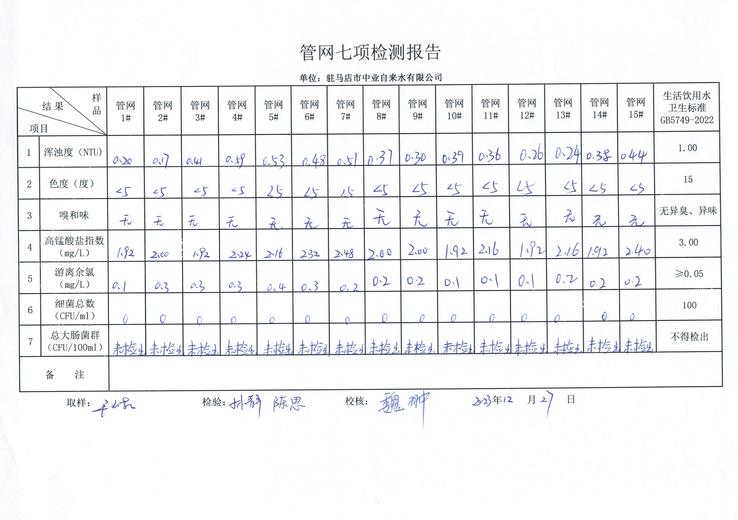 管网七项检测报告
单位：驻马店市中业自来水有限公司
结果 样品 项目 管网1# 管网2# 管网3# 管网4# 管网5# 管网6# 管网7# 管网8# 管网9# 管网10# 管网11# 管网12# 管网13# 管网14# 管网15# 生活饮用水卫生标准GB5749-2022
1 浑浊度（NTU） 0.20 0.17 0.41 0.59 0.53 0.48 0.51 0.37 0.30 0.39 0.36 0.26 0.24 0.38 0.44 1.00
2 色度（度） <5 <5 <5 <5 <5 <5 <5 <5 <5 <5 <5 <5 <5 <5 <5 15
3 嗅和味 无 无 无 无 无 无 无 无 无 无 无 无 无 无 无 无异臭、异味
4 高锰酸盐指数（mg/L） 1.92 2.00 1.92 2.24 2.16 2.32 2.48 2.00 2.00 1.92 2.16 1.92 2.16 1.92 2.40 3.00
5 游离余氯（mg/L） 0.1 0.3 0.3 0.3 0.4 0.3 0.2 0.2 0.2 0.1 0.1 0.1 0.2 0.2 0.2 ≥0.05
6 细菌总数（CFU/ml） 0 0 0 0 0 0 0 0 0 0 0 0 0 0 0 100
7 总大肠菌群（CFU/100ml） 未检出 未检出 未检出 未检出 未检出 未检出 未检出 未检出 未检出 未检出 未检出 未检出 未检出 未检出 未检出 不得检出
备注
取样： 检验： 陈思 校核： 魏 2023年12月27日